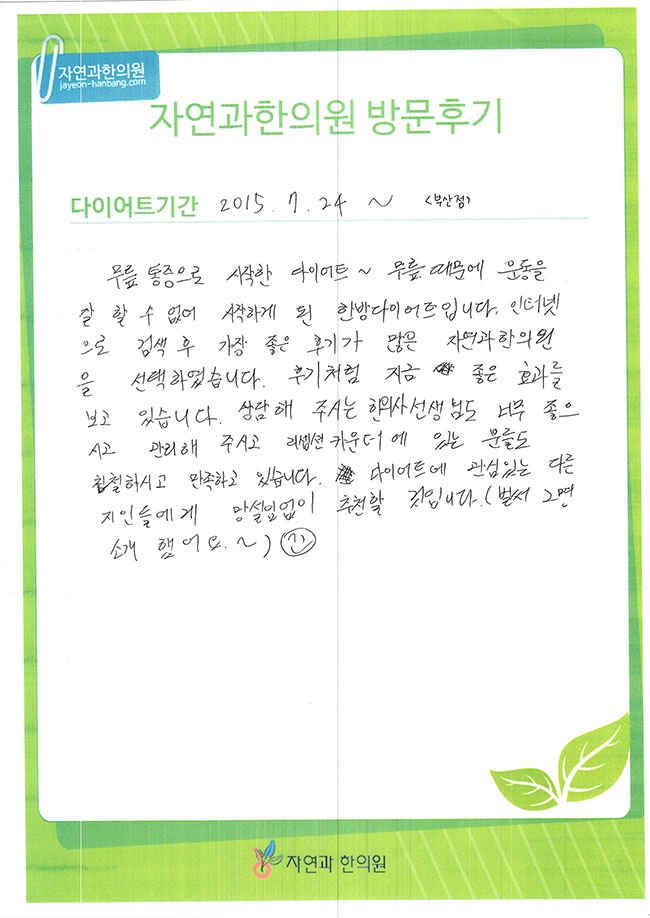 자연과한의원
jayeon-hanbang.com
자연과한의원 방문후기
다이어트기간 2015. 7. 24 ~ <부산점>
무릎 통증으로 시작한 다이어트~ 무릎 때문에 운동을
잘 할 수 없어 시작하게 된 한방다이어트입니다. 인터넷
으로 검색 후 가장 좋은 후기가 많은 자연과한의원
을 선택하였습니다. 후기처럼 지금 좋은 효과를
보고 있습니다. 상담해 주시는 한의사선생님도 너무 좋으
시고 관리해 주시고 리셉션 카운터에 있는 분들도
칩철하시고 만족하고 있습니다. 다이어트에 관심있는 다른
지인들에게 망설임없이 추천할 것입니다. (벌써 2명
소개 했어요.~)
자연과 한의원